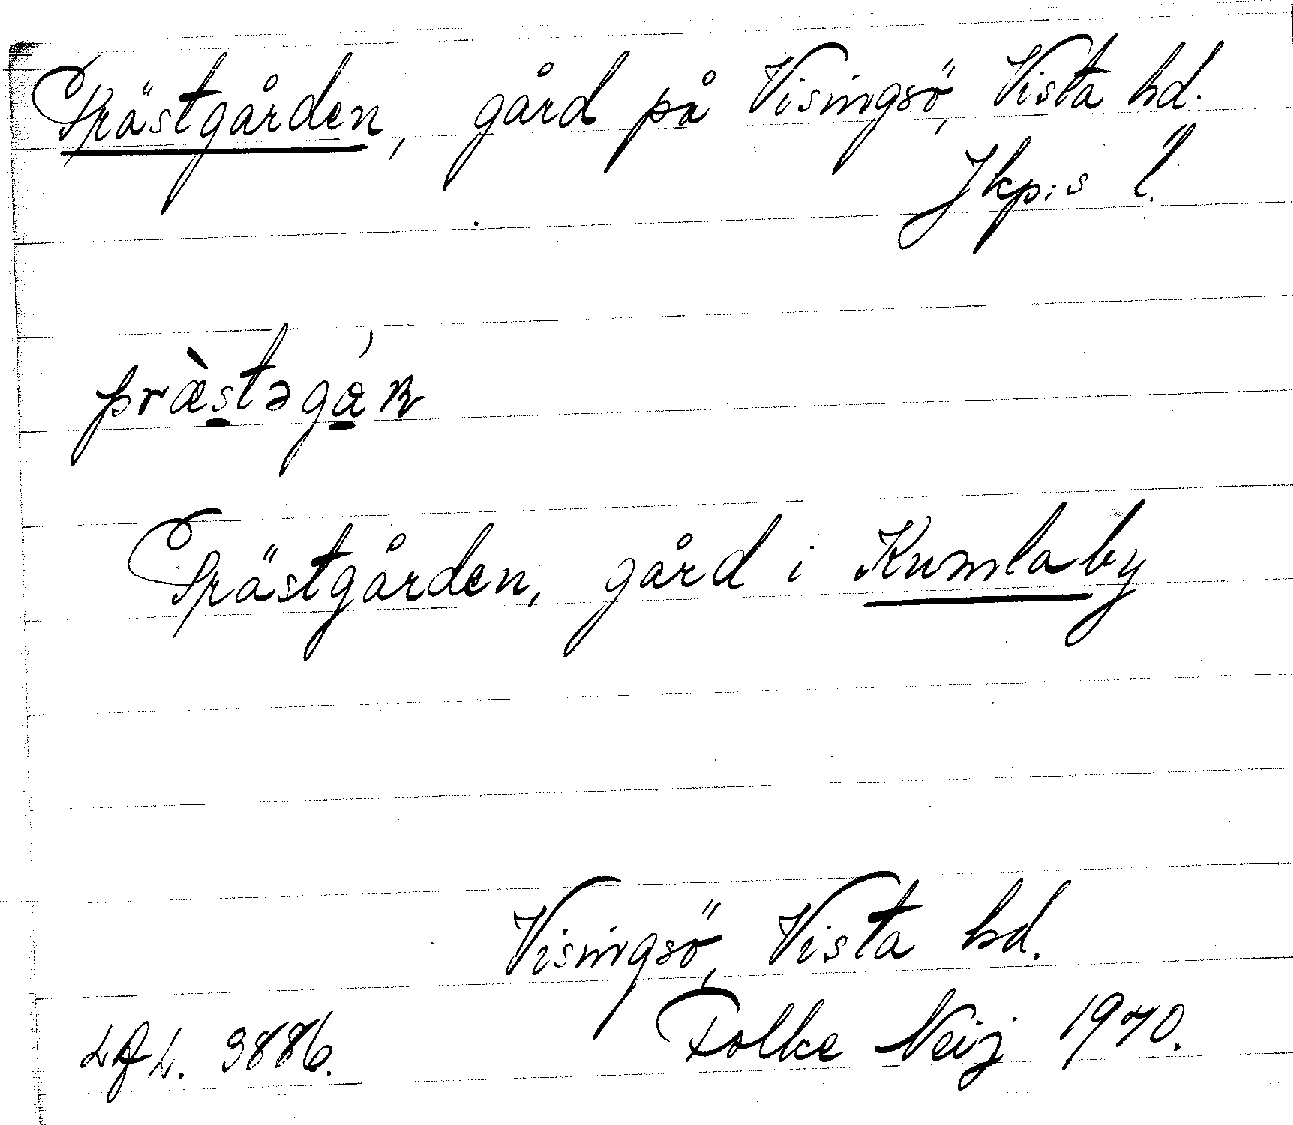 Prästgården, gård på Visingsö, Vista hd.
Jkp:s l.
præ̀stəgɑ́ɳ
Prästgården, gård i Kumlaby
Visingsö, Vista hd.
Folke Neij 1970.
LfL. 3886.